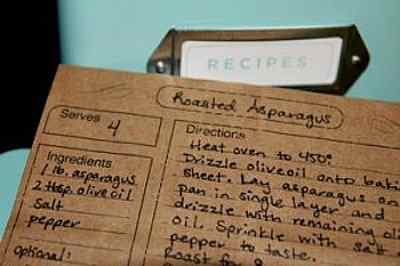 RECIPES
Roasted Asparagus
Serves 4
Directions
Heat oven to 450°
Drizzle olive oil onto
sheet. Lay asparagus on
pan in single layer and
drizzle with remaining
oil. Sprinkle with salt
pepper to taste.
Roast for
Ingredients
1 lb. asparagus
2 tbsp. olive oil
Salt
pepper
Optional: